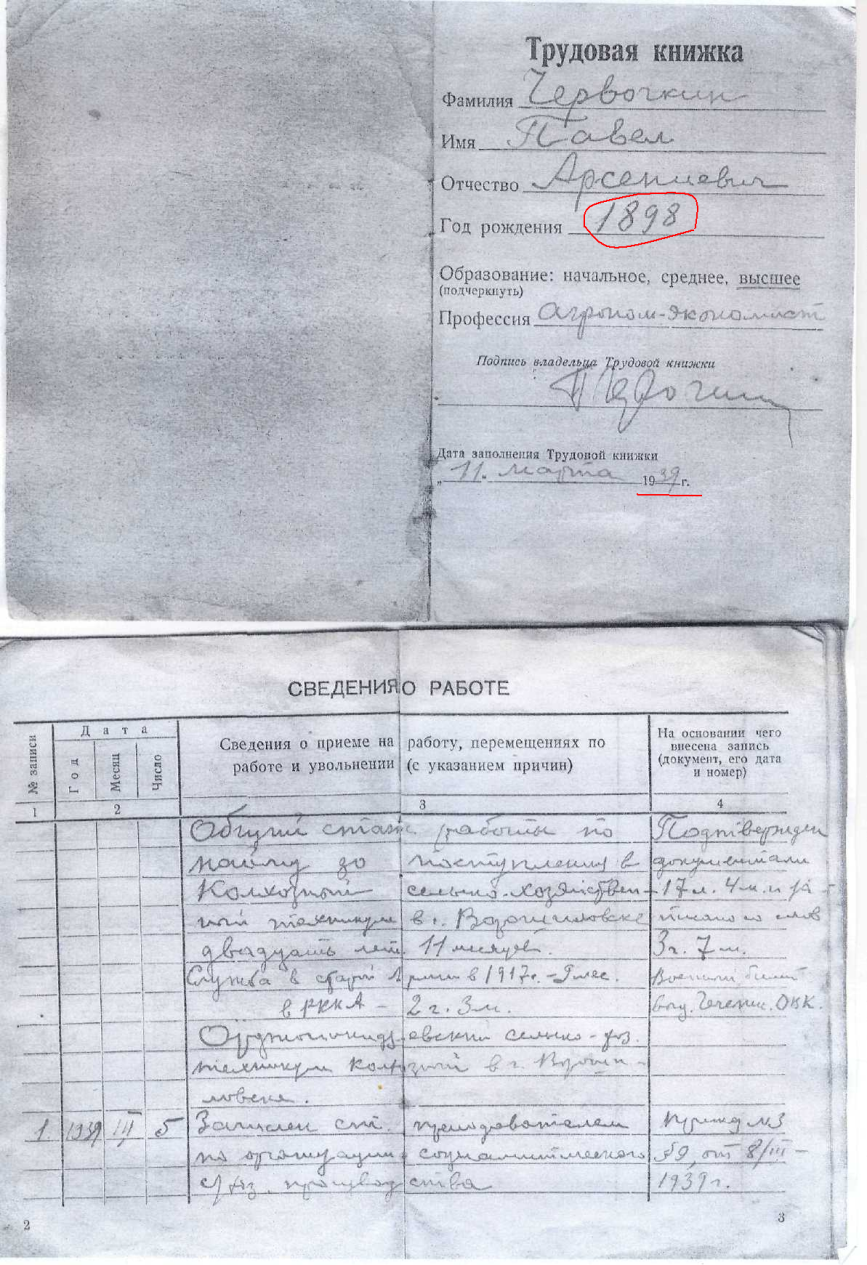 Трудовая книжка
Фамилия Червочкин
Имя Павел
Отчество Арсентиевич
Год рождения 1898
Образование: начальное, среднее, высшее
(подчеркнуть)
Профессия агроном-экономист
Подпись владельца Трудовой книжки
Дата заполнения Трудовой книжки
„11" марта 1939 г.
СВЕДЕНИЯ О РАБОТЕ
№ записи
Дата
Год
Месяц
Число
Сведения о приеме на работу, перемещениях по
работе и увольнении (с указанием причин)
На основании чего
внесена запись
(документ, его дата
и номер)
1 2 3 4
Общий стаж работы по Подтвержден
найму до поступления в документами
Колхозный сельско-хозяйствен- 17 л. 4 м. и за-
ный техникум в г. Ворошиловске писано со слов
двадцать лет 11 месяцев. 3 г. 7 м.
Служба в старой Армии в 1917 г. - 9 мес. Военный билет
в РККА - 2 г. 3 м. выд. ОВК.
Орджоникидзевский сельско-хоз.
техникум колхозный в г. Вороши-
ловске.
1 1939 III 5 Зачислен ст. преподавателем Приказ №3
по организации социалистического §9, от 8/III-
с/хоз. производства 1939 г.
2 3